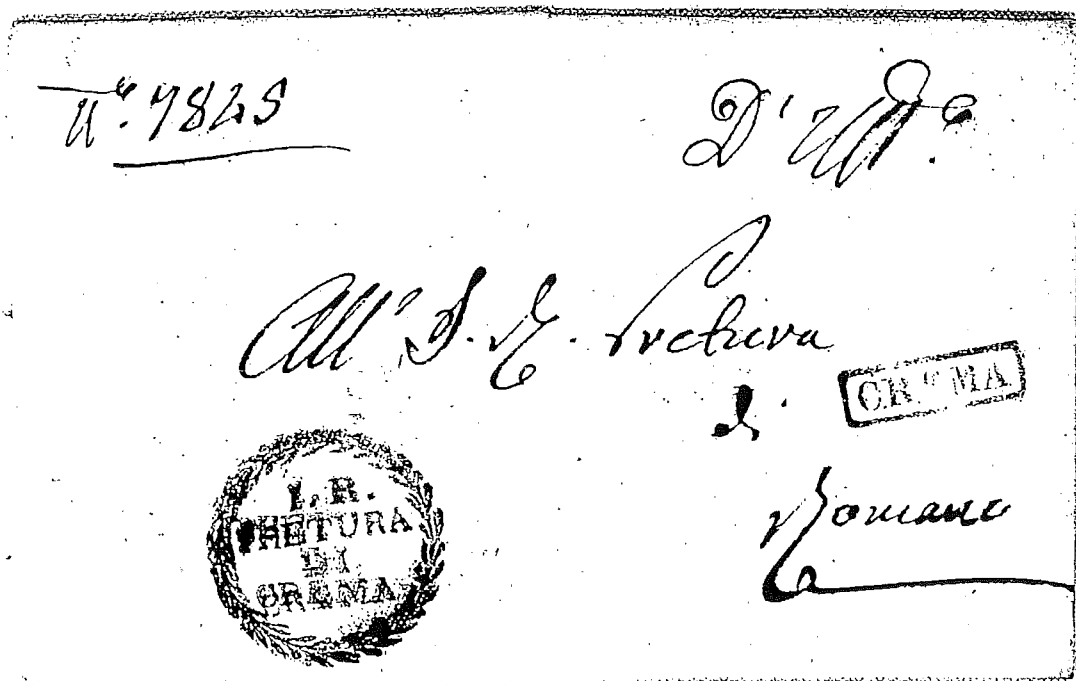 N.º 7845
D'Uff.º
All' I. R. Pretura
di
CREMA
Romano
I. R.
PRETURA
DI
CREMA